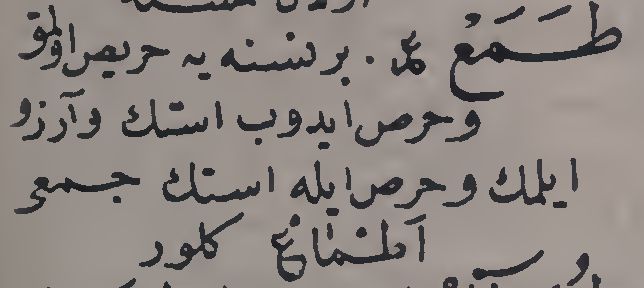 اولان
طَمَعْ عم. برنسنه یه حریص اولمق
وحرص ایدوب استك وآرزو
ایلمك وحرص ایله استك جمعی
اَطْمَاعْ كلور